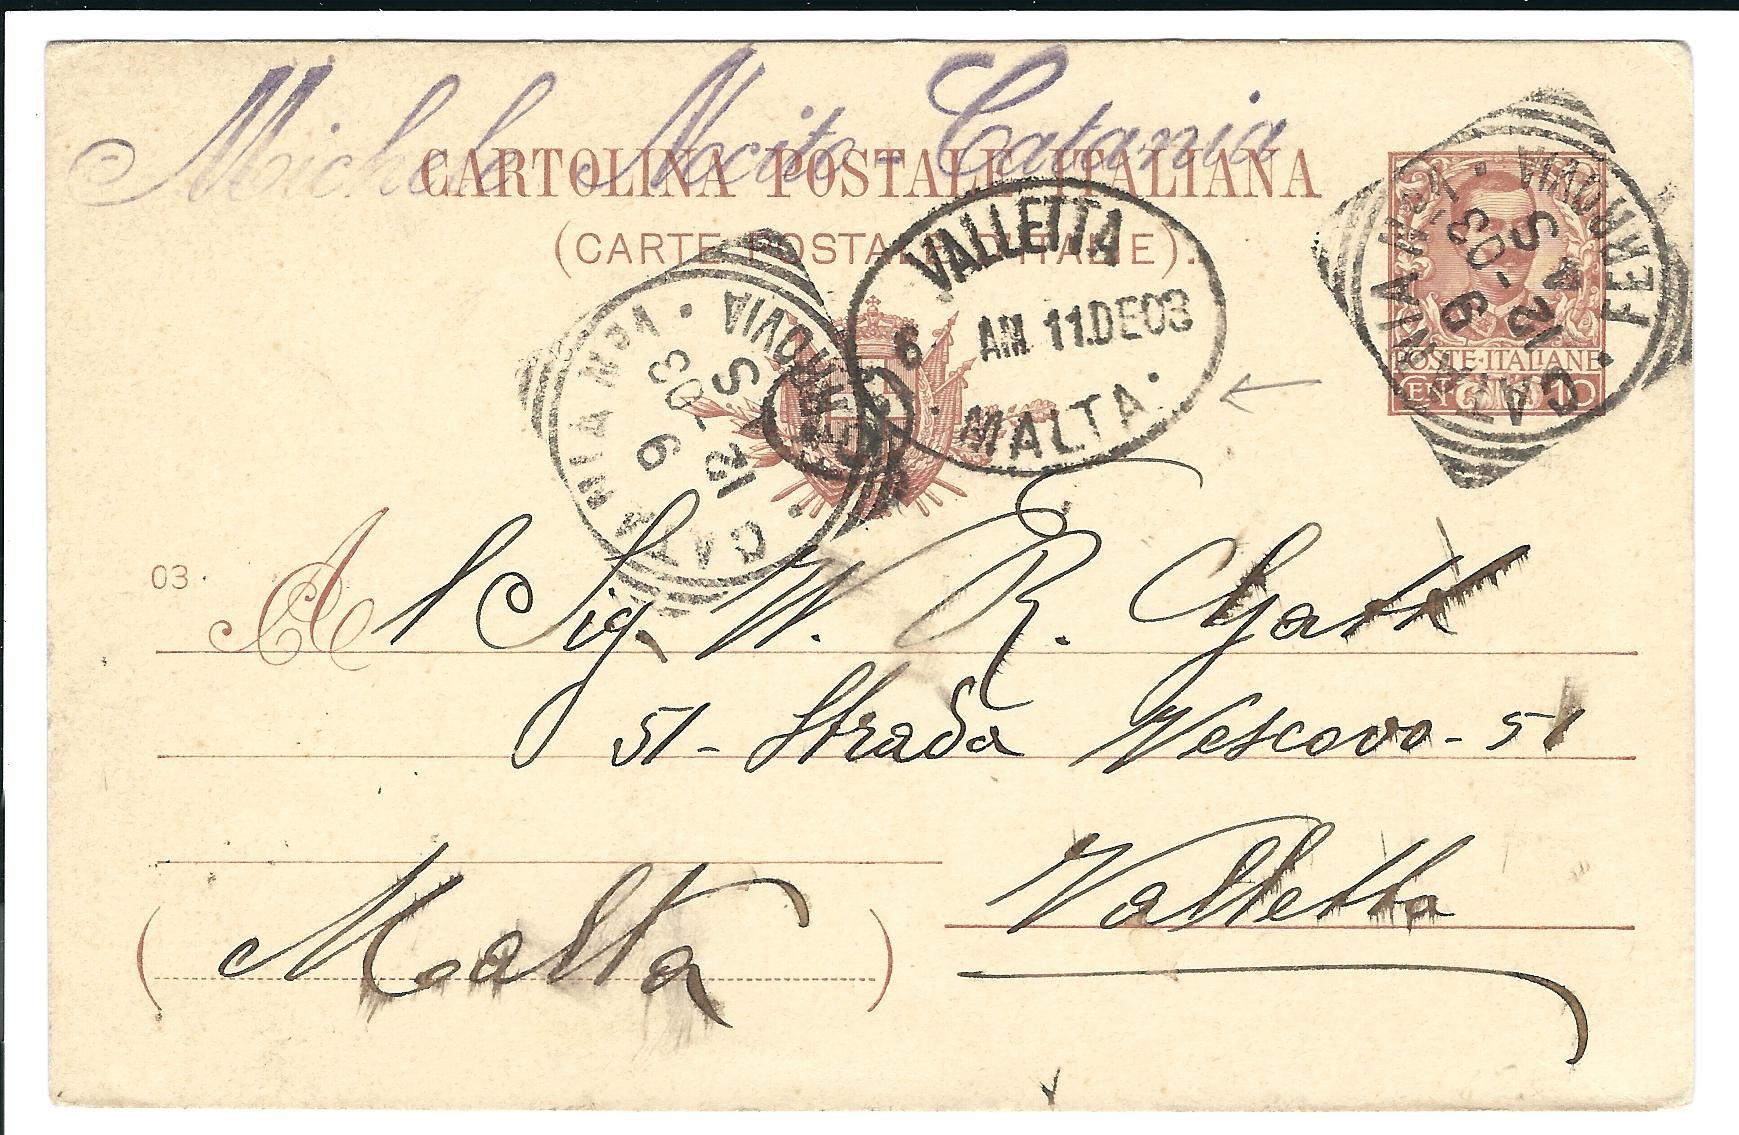 Michele Nocito - Catania
CARTOLINA POSTALE ITALIANA
(CARTE POSTALE D'ITALIE).
VALLETTA
6 AM 11.DE03
MALTA
CATANIA FERROVIA
9 12 03
CATANIA FERROVIA
9 12 03
POSTE·ITALIANE
CENT. 10
03
Al Sig. W. R. Gatt
51 - Strada Vescovo - 51
Valletta
(Malta)